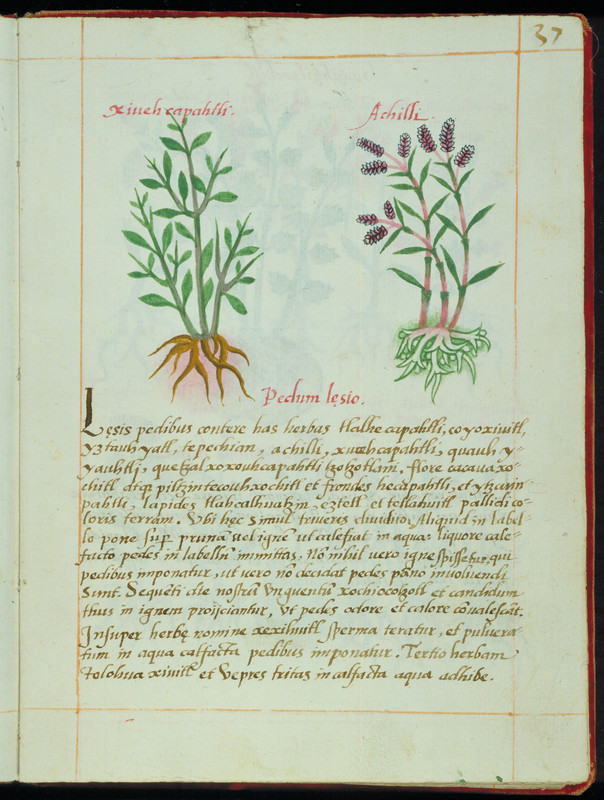 37
xiueh capahtli.
Achilli.
Pedum lęsio.
Lęsis pedibus contere has herbas tlalhe capahtli, coyoxiuitl,
yztauhyatl, tepechian, achilli, xiueh capahtli, quauh y-
yauhtlj, quetzalxoxouhcapahtli tzotzotlanj. flore cacauaxo-
chitl dicto piltzintecouhxochitl et frondes hecapahtli, et ytzcuin-
pahtli, lapides tlahcalhuatzin, eztetl et tetlahuitl pallidi co-
loris terram. Vbi hęc simul triueris diuidito. Aliquid in label-
lo pone sup pruna uel ignẽ ut calefiat in aqua: liquore cale-
facto pedes in labellũ inmittas. Nõ nihil vero igne spissetur, qui
pedibus imponatur, ut vero nõ decidat pedes pãno inuoluendi
sunt. Sequẽti die nostrũ vnguentũ xochiocotzotl et candidum
thus in ignem proijciantur, vt pedes odore et calore cõualescãt.
Insuper herbę nomine xexihuitl sperma teratur, et puluera-
tum in aqua calfacta pedibus imponatur. Tertio herbam
tolohua xiuitl et vepres tritas in calfacta aqua adhibe.